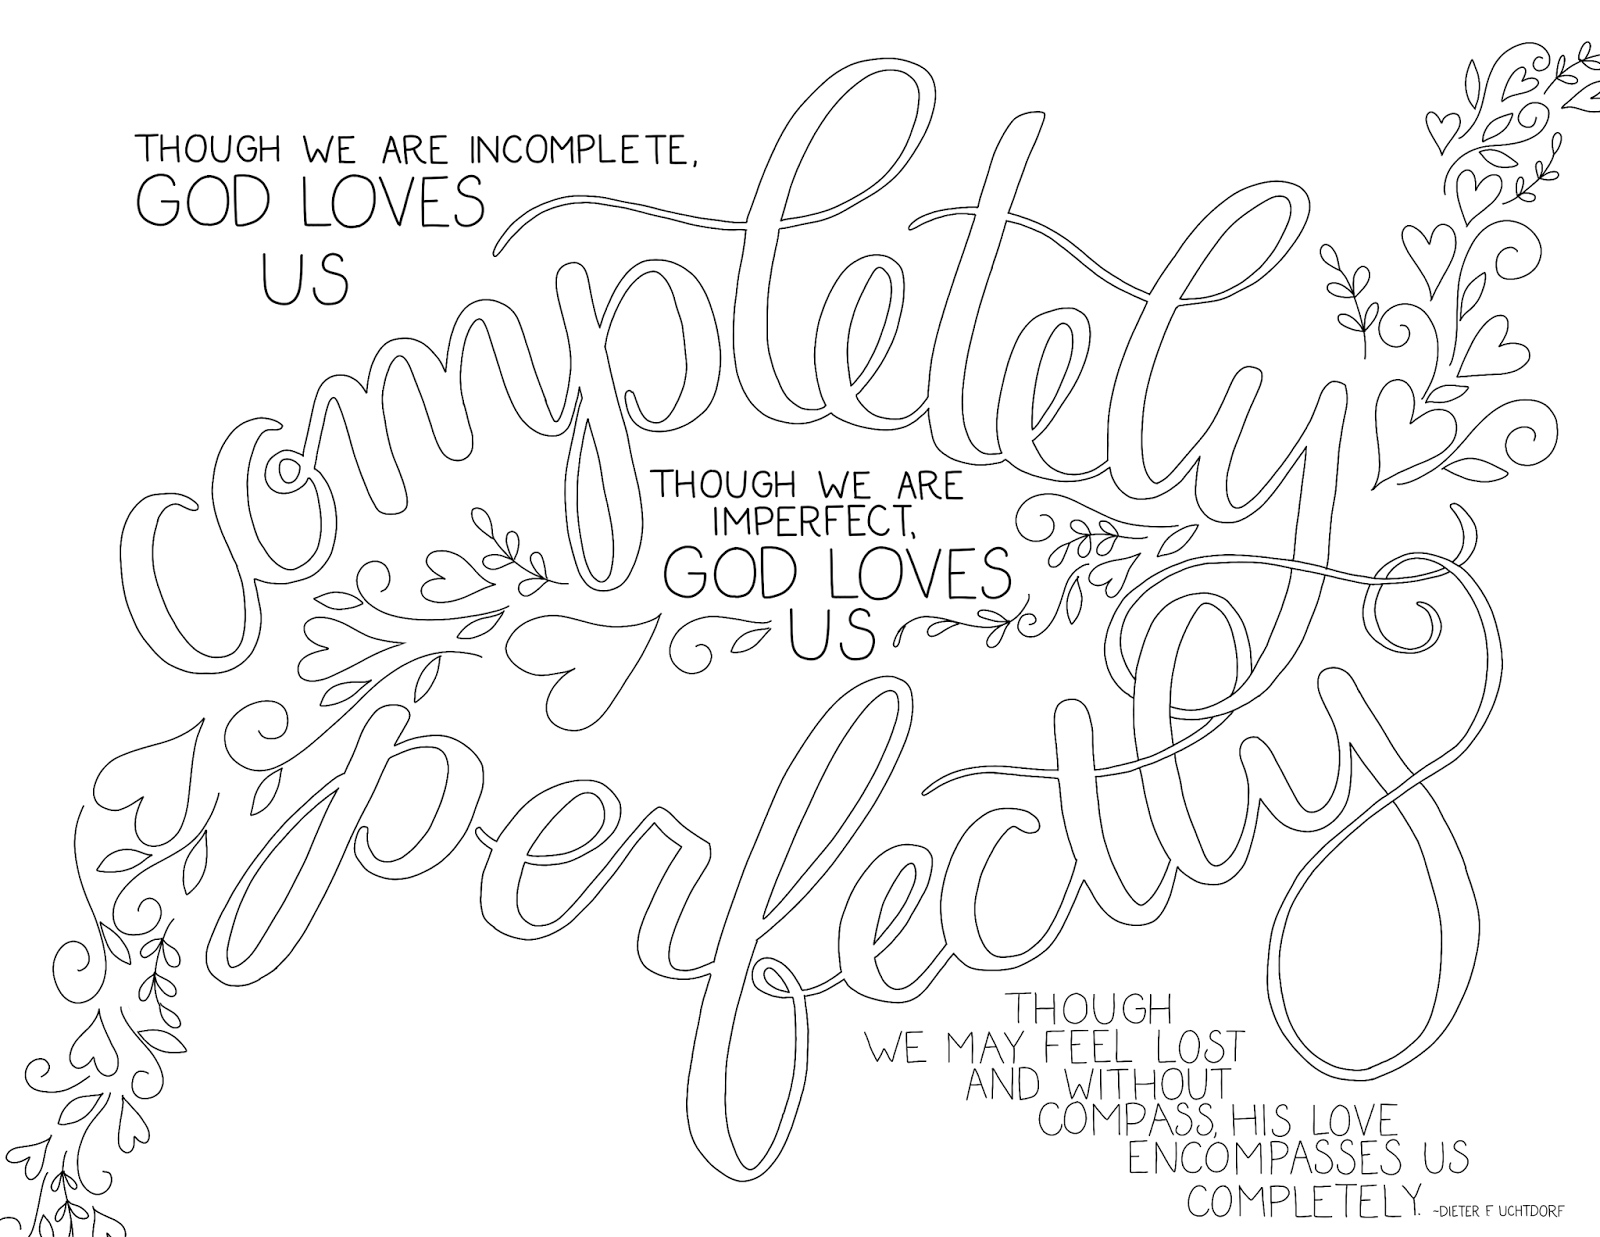 THOUGH WE ARE INCOMPLETE,
GOD LOVES
US
completely
THOUGH WE ARE
IMPERFECT,
GOD LOVES
US
perfectly
THOUGH
WE MAY FEEL LOST
AND WITHOUT
COMPASS, HIS LOVE
ENCOMPASSES US
COMPLETELY. ~DIETER F UCHTDORF